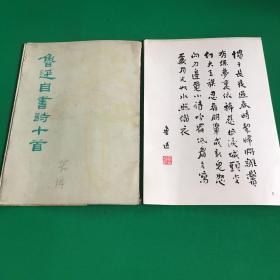 魯迅自書詩十首
慣于長夜過春時挈婦將雛鬢
有絲夢裏依稀慈母淚城頭變
幻大王旗忍看朋輩成新鬼怒
向刀邊覓小詩吟罷低眉無寫
處月光如水照緇衣
魯迅